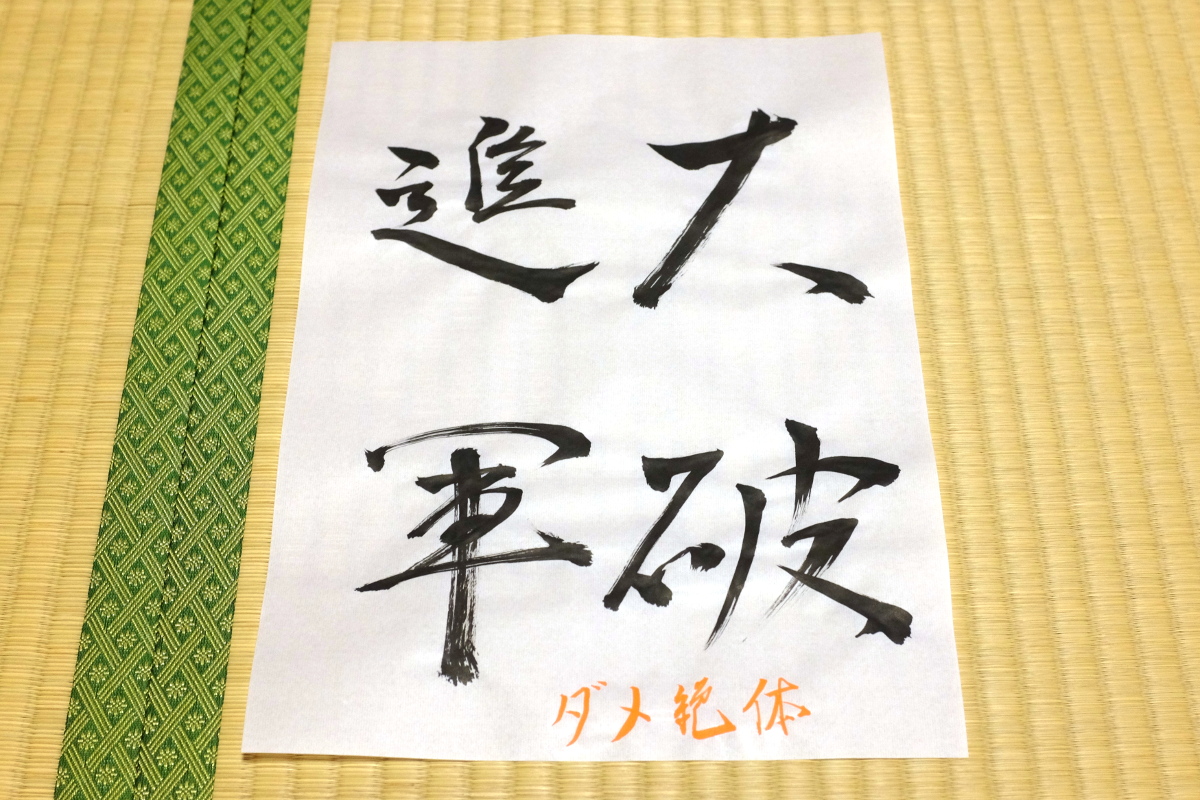 大破
進軍
ダメ絶体